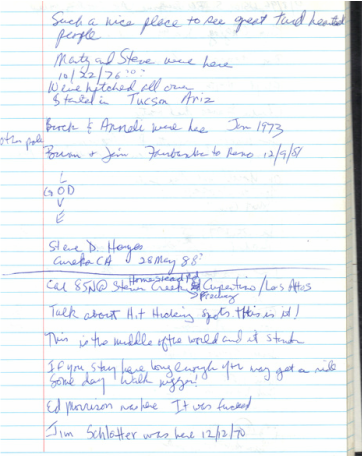 Such a nice place to see great hearted
people
Marty and Steve were here
10/22/76
We've hitched all over
Started in Tucson Ariz
Brock & were here Jan 1973
other pole
+ Jim Fairbanks to Reno 12/9/81
L
GOD
V
E
Steve D. Hayes
Eureka CA 28 May 88
Homestead Rd
Cal 85N@ Stevens Creek Cupertino/Los Altos
Talk about Hitch Hiking Spots this is it!
This is the middle of the world and it stinks
If you stay here long enough you may get a ride
Some day
Ed Morrison was here It was fucked
Jim Schlotter was here 12/12/70